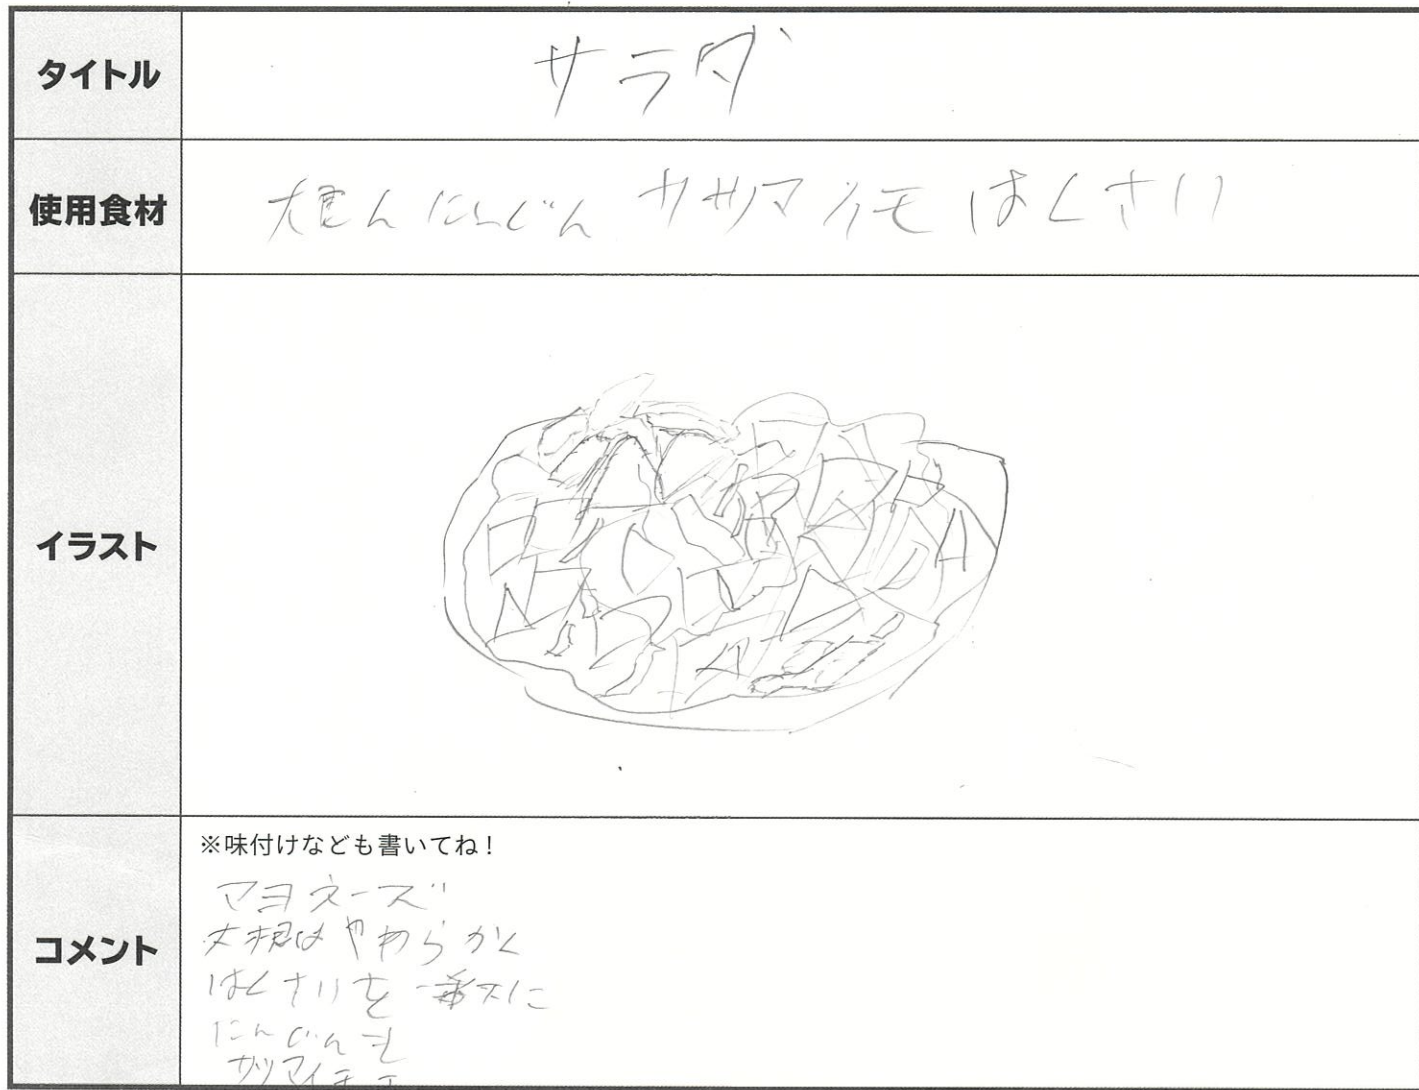 タイトル
サラダ
使用食材
大根 にんじん サツマイモ はくさい
イラスト
コメント
※味付けなども書いてね！
マヨネーズ
大根はやわらかく
はくさいを一番下に
にんじんも
サツマイモ